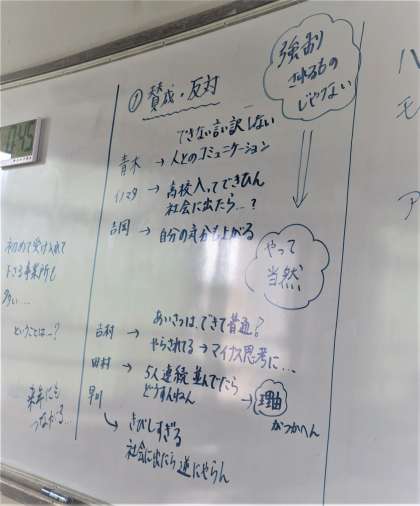 ① 賛成・反対
強制
されるもの
じゃない
できない言い訳しない
青木 → 人とのコミュニケーション
イノマタ → 高校入ってできひん
社会に出たら…?
吉岡 → 自分の気分も上がる
やって
当然
初めて受け入れて
下さる事業所も
多い…
ということは…?
来年にも
つながる…
吉村 → あいさつは、できて普通?
やらされてる → マイナス思考に…
田村 → 5人連続並んでたら
どうすんねん → 理由
がつかへん
早川
↳ きびしすぎる
社会に出たら逆にやらん
ハ
モ
ア